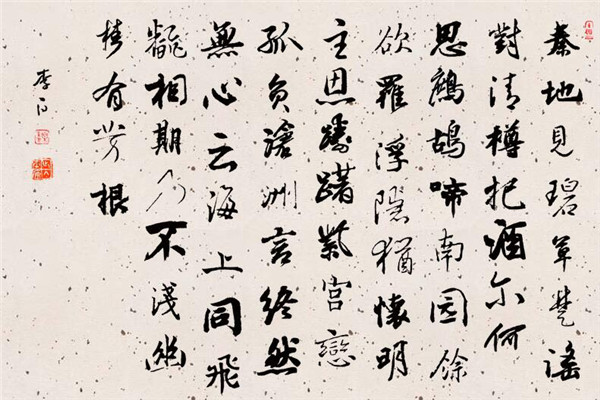 秦地見碧草楚謠
對清樽把酒尔何
思鷓鴣啼南园餘
欲羅浮隱猶懷明
主恩躊躇紫宮戀
孤負滄洲言終然
無心云海上同飛
飜相期乃不淺幽
桂有芳根
李白